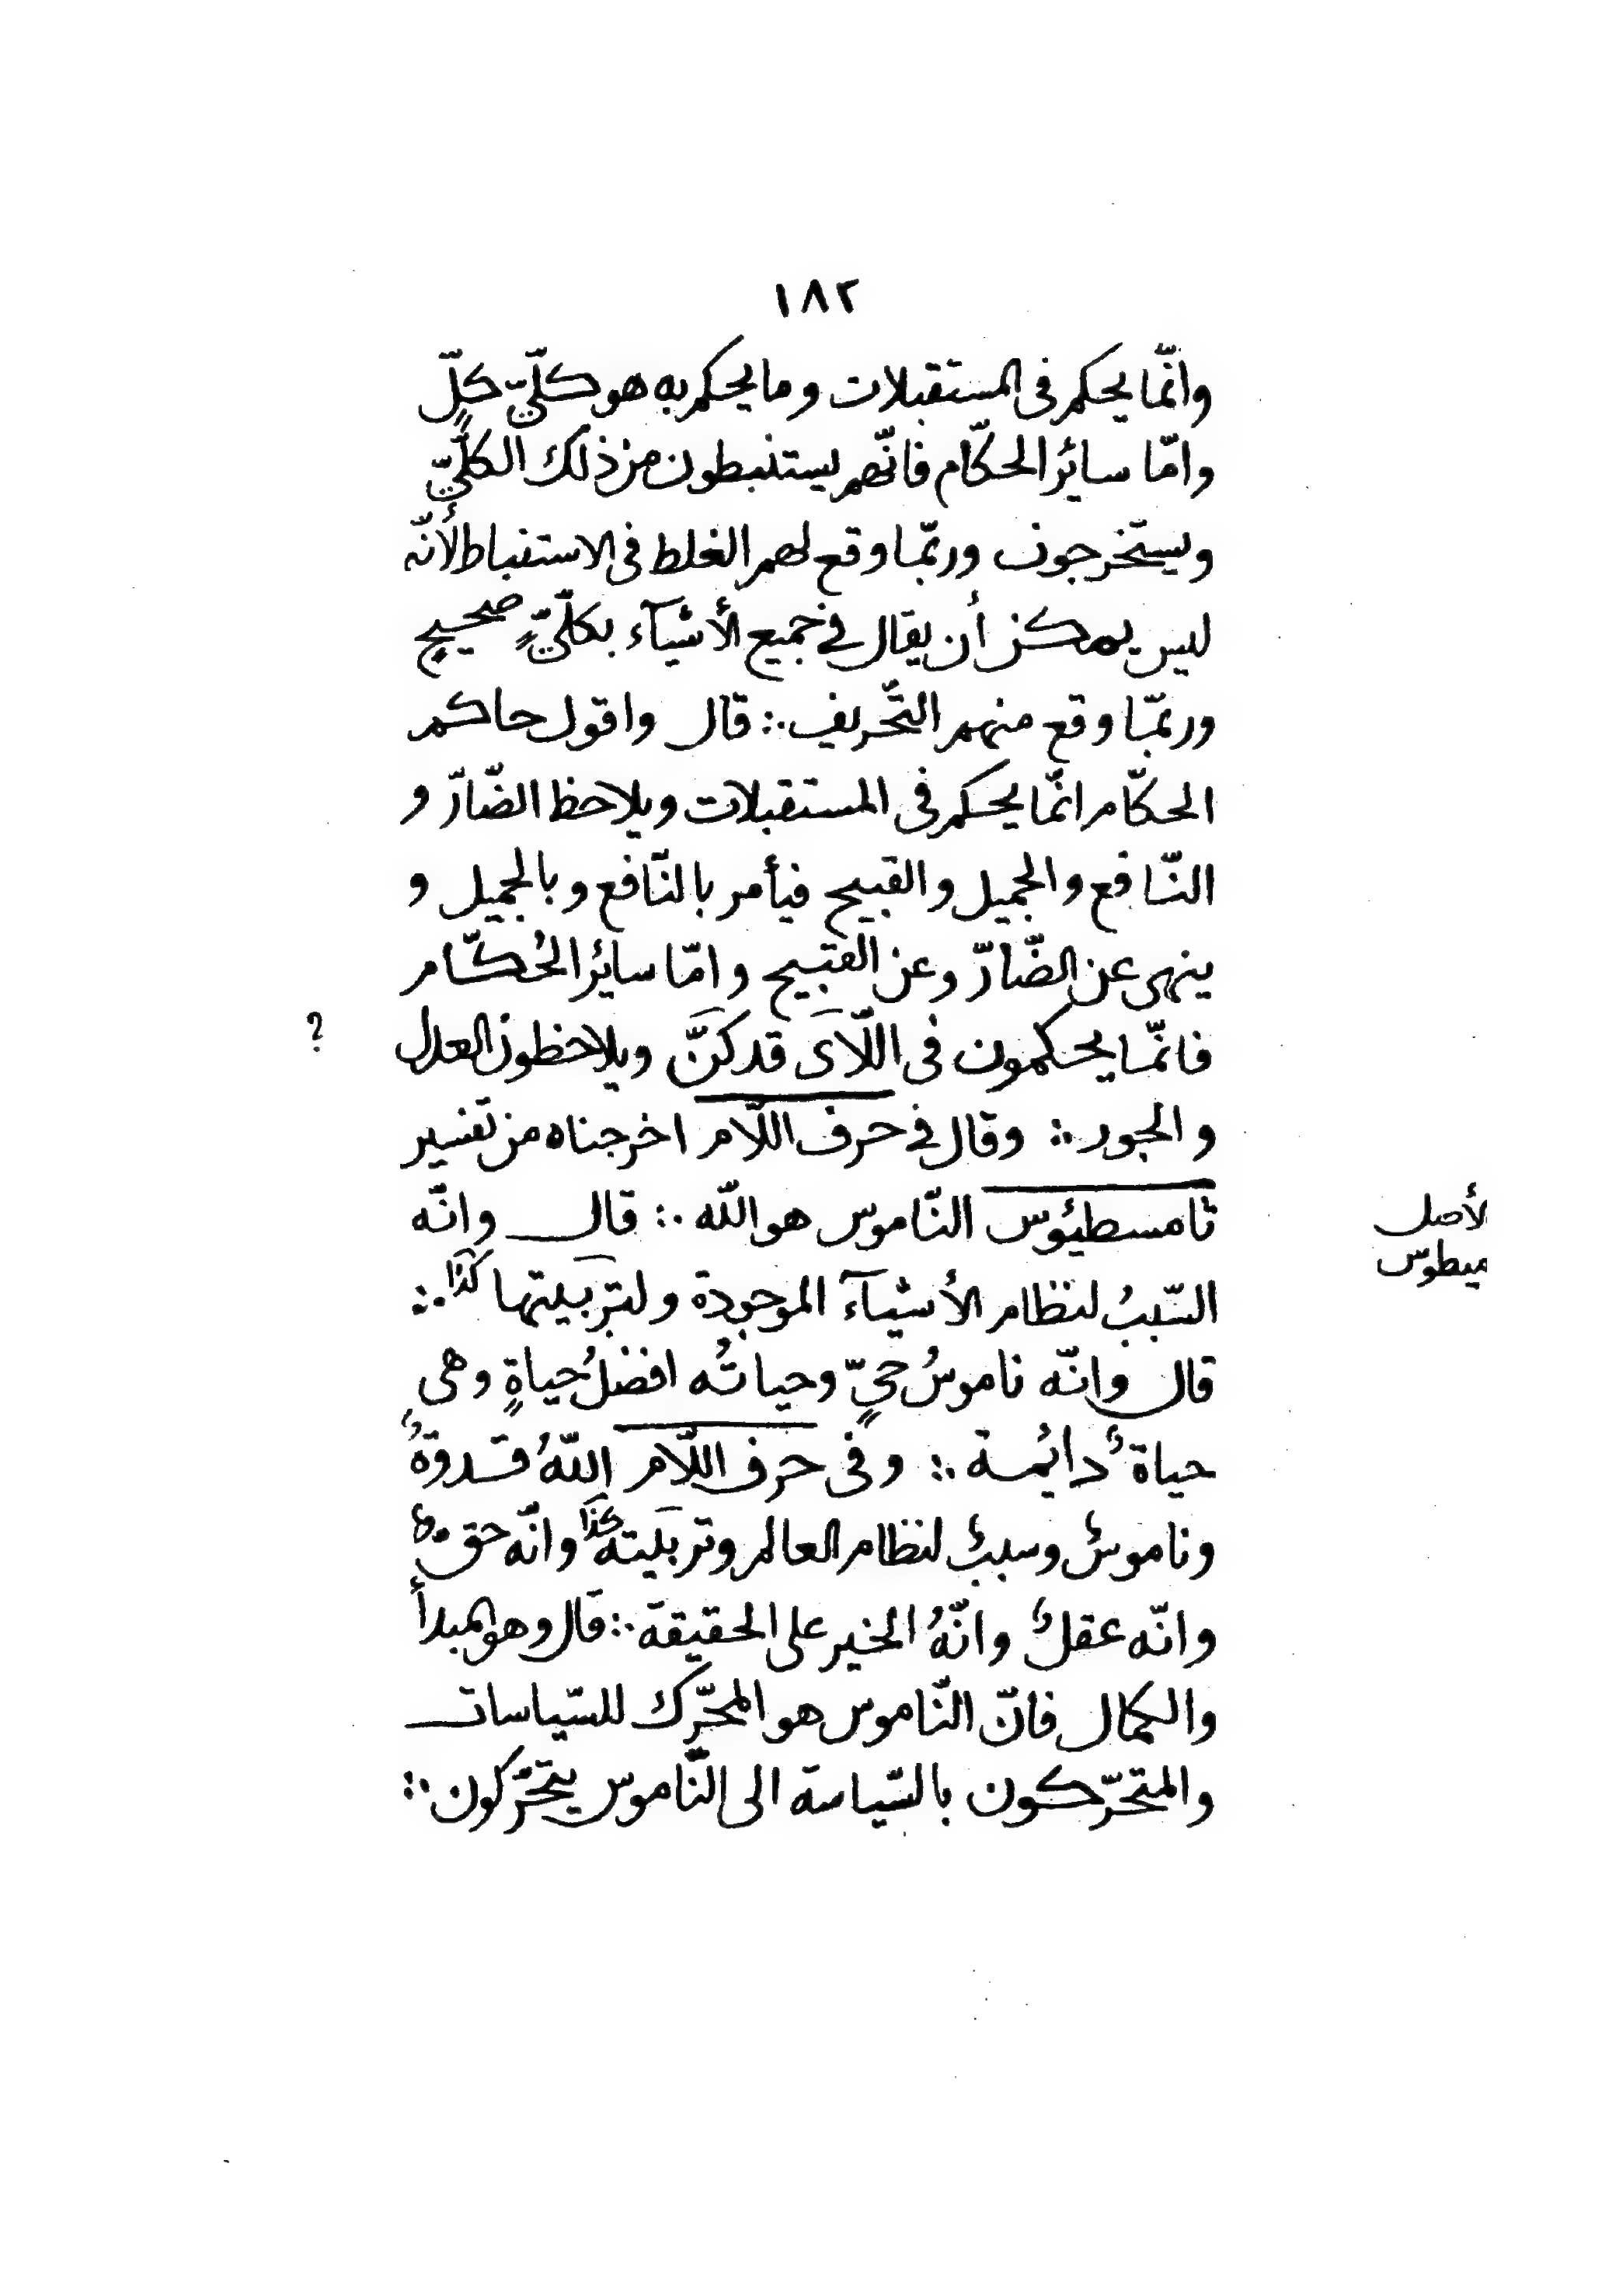 ١٨٢
وانّما يحكم فى المستقبلات وما يحكم به هو كلّىّ كلٍّ
وامّا سائر الحكّام فانّهم يستنبطون من ذلك الكلّىّ
ويستخرجون وربّما وقع لهم الغلط فى الاستنباط لأنّه
ليس يمكن أن يقال فى جميع الأشيآء بكلّىٍّ صحيحٍ
وربّما وقع منهم التّحريف ∴ قال واقول حاكم
الحكّام انّما يحكم فى المستقبلات ويلاحظ الضّارّ و
النّافع والجميل والقبيح فيأمر بالنّافع وبالجميل و
ينهى عن الضّارّ وعن القبيح وامّا سائر الحُكّام
فانّما يحكمون فى اللّآى قد كنَّ ويلاحظون العدل
?
والجور ∴ وقال فى حرف اللّام اخرجناه من تفسير
ثامسطيُوس النّاموس هو اللّه ∴ قال وانّه
الأصل
ميطوس
السّببُ لنظام الأشيآءَ الموجودة ولتربيتها كذا ∴
قال وانّه ناموسُ حىٍّ وحياتُه افضلُ حياةٍ وهى
حياةٌ دائمة ∴ وفى حرف اللّام اللّهُ قدوةٌ
وناموسٌ وسببٌ لنظام العالم وتربيته كذا وانّه حقٌ
وانّه عقلٌ وانّهُ الخير على الحقيقة ∴ قال وهو المبدأ
والكمال فانّ النّاموس هو المحرّك للسّياسات
والمتحرّكون بالسّياسة الى النّاموس يتحرّكون ∴